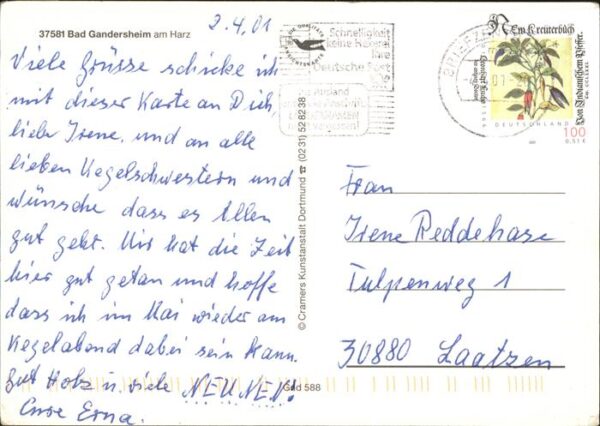 37581 Bad Gandersheim am Harz
2.4.01
Viele Grüsse schicke ich
mit dieser Karte an Dich,
liebe Irene, und an alle
lieben Kegelschwestern und
wünsche dass es Allen
gut geht. Mir hat die Zeit
hier gut getan und hoffe
dass ich im Mai wieder am
Kegelabend dabei sein kann.
Gut Holz u. viele NEUNEN!
Eure Erna.
© Cramers Kunstanstalt Dortmund ☎ (0231) 528238
Gad 588
Schnelligkeit
keine Hexerei
Ihre
Deutsche Post
Ins Ausland
New Kreuterbüch
Von Indianischem Pfeffer.
DEUTSCHLAND
100
0,51 €
Frau
Irene Reddehase
Tulpenweg 1
30880 Laatzen